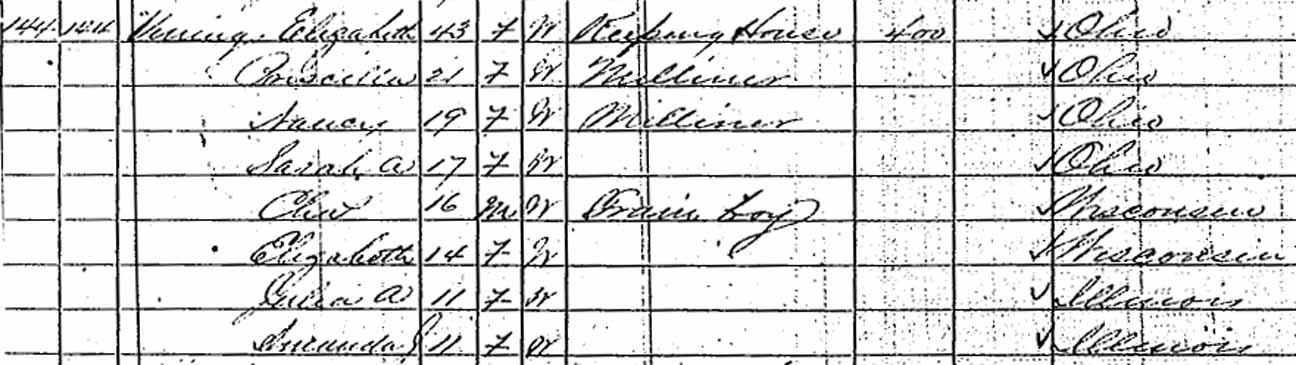 144 144 Elizabeth 43 F W Keeping House 400 Ohio
Priscilla 21 F W Milliner Ohio
Nancy 19 F W Milliner Ohio
Sarah A 17 F W Ohio
16 M W Train Boy Wisconsin
Elizabeth 14 F W Wisconsin
Julia A 11 F W Illinois
Amanda J 11 F W Illinois